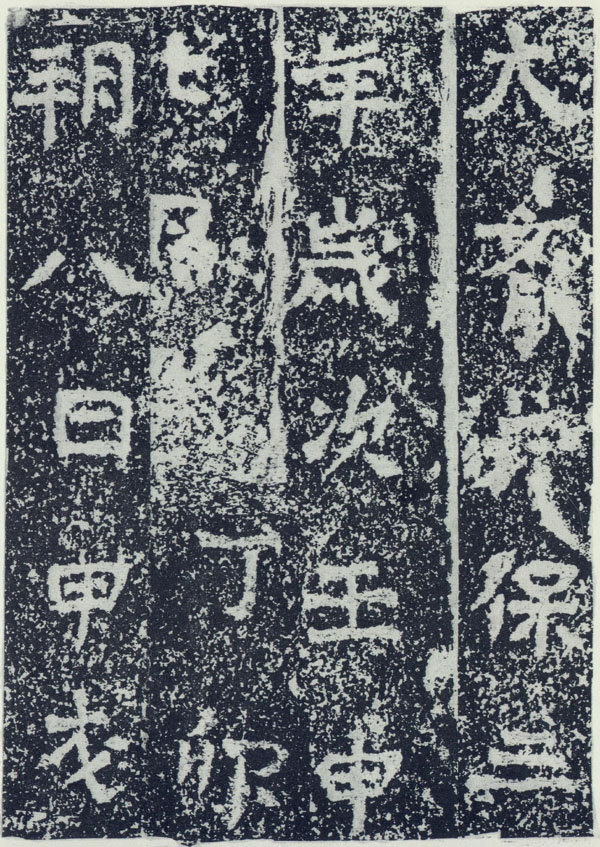 大齊天保三
年歲次壬申
七丁卯
朔八日甲戌